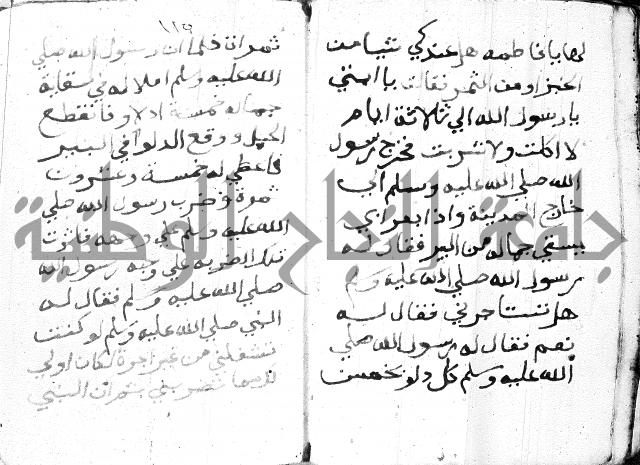 لها يا فاطمه هل عندكي شيا من
الخبز او من الثمر فقالت يا ابتي
يا رسول الله الي ثلاثة ايام
لا اكلت ولا شربت فخرج رسول
الله صلي الله عليه وسلم الي
خارج المدينة واذا بعرابي
يسقي جماله من البير فقال له
رسول الله صلي الله عليه وسلم
هل تستاجرني فقال له
نعم فقال له رسول الله صلي
الله عليه وسلم كل دلو بخمس
١١٥
ثمرات فلما ان رسول الله صلي
الله عليه وسلم املا له في سقاية
جماله خمسة ادلاو فانقطع
الحبل ووقع الدلو في البير
فاعطي له خمسة وعشرون
ثمرة وضرب رسول الله صلي
الله عليه وسلم علي وجهه فاثرت
تلك الضربه علي وجه رسول الله
صلي الله عليه وسلم فقال له
النبي صلي الله عليه وسلم لو كنت
تشغلني من غير اجرة لكان اولي
تضربني ثم ان النبي
جامعة النجاح الوطنية